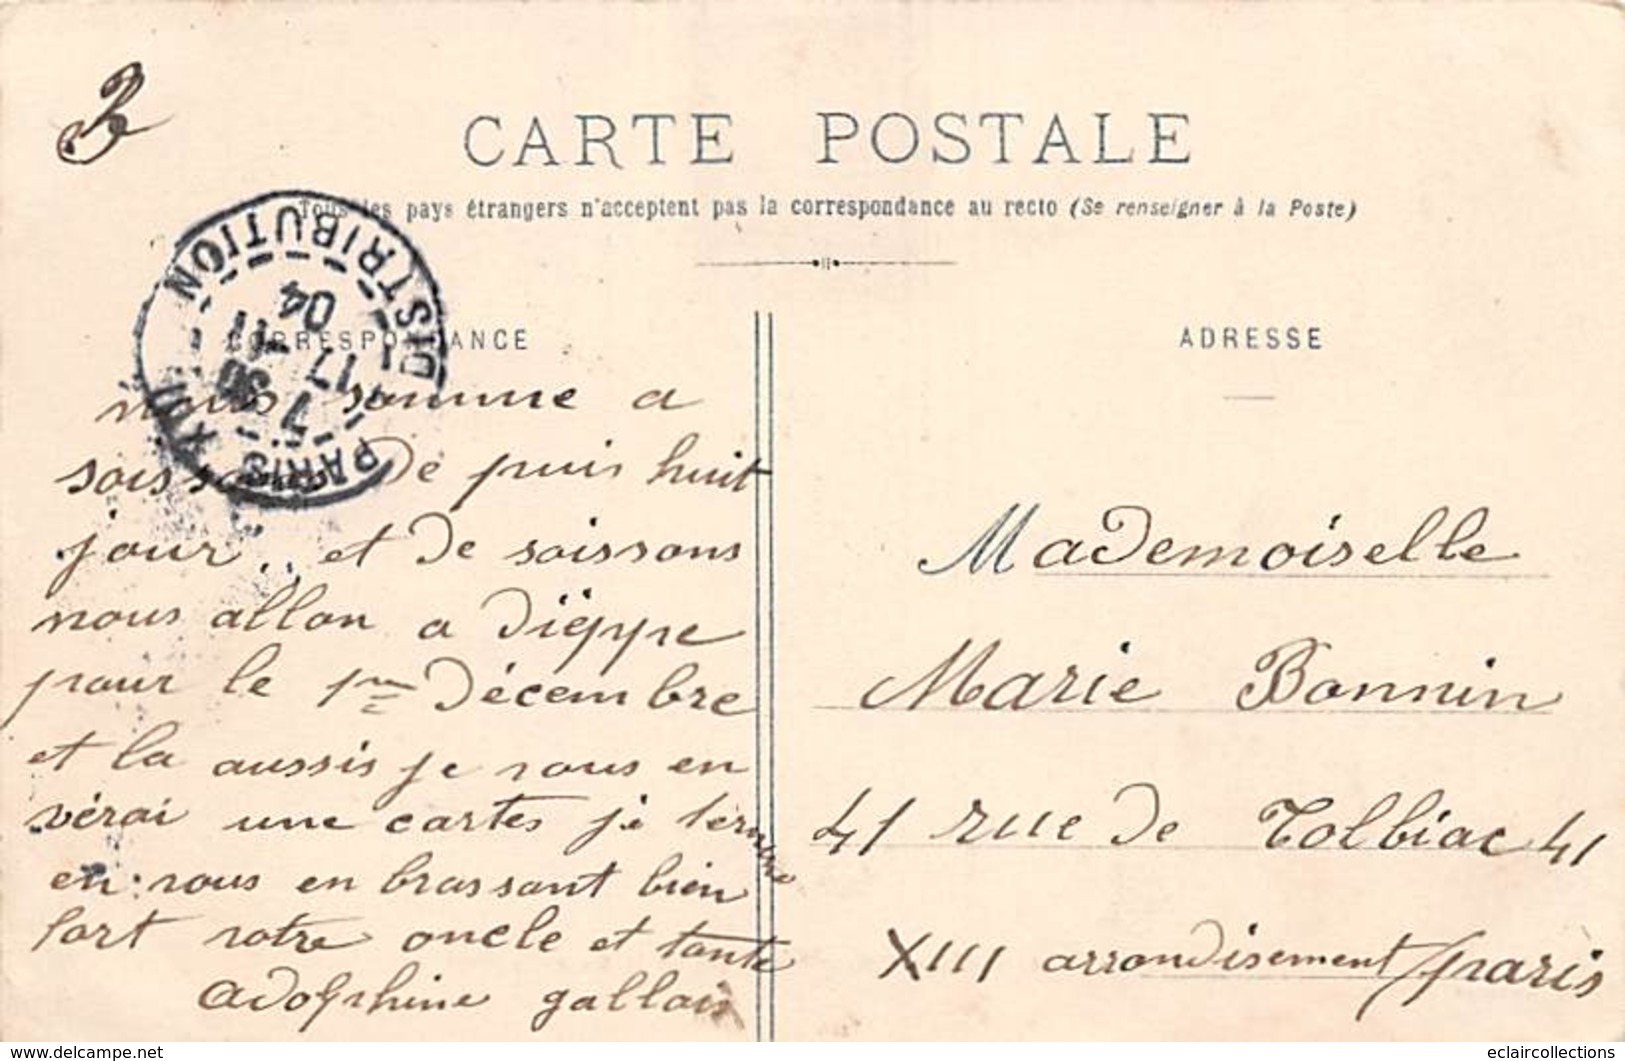 CARTE POSTALE
Tous les pays étrangers n'acceptent pas la correspondance au recto (Se renseigner à la Poste)
PARIS XIII DISTRIBUTION
7 30
17 -11
04
CORRESPONDANCE
nous somme a
soissons De puis huit
jour.. et De soissons
nous allon a Dieppe
pour le 1er Décembre
et la aussis je vous en
vérai une cartes je termine
en vous en brassant bien
fort votre oncle et tante
adolphine gallois
ADRESSE
Mademoiselle
Marie Bonnin
41 rue De Tolbiac 41
XIII arrondisement/paris
eclaircollections